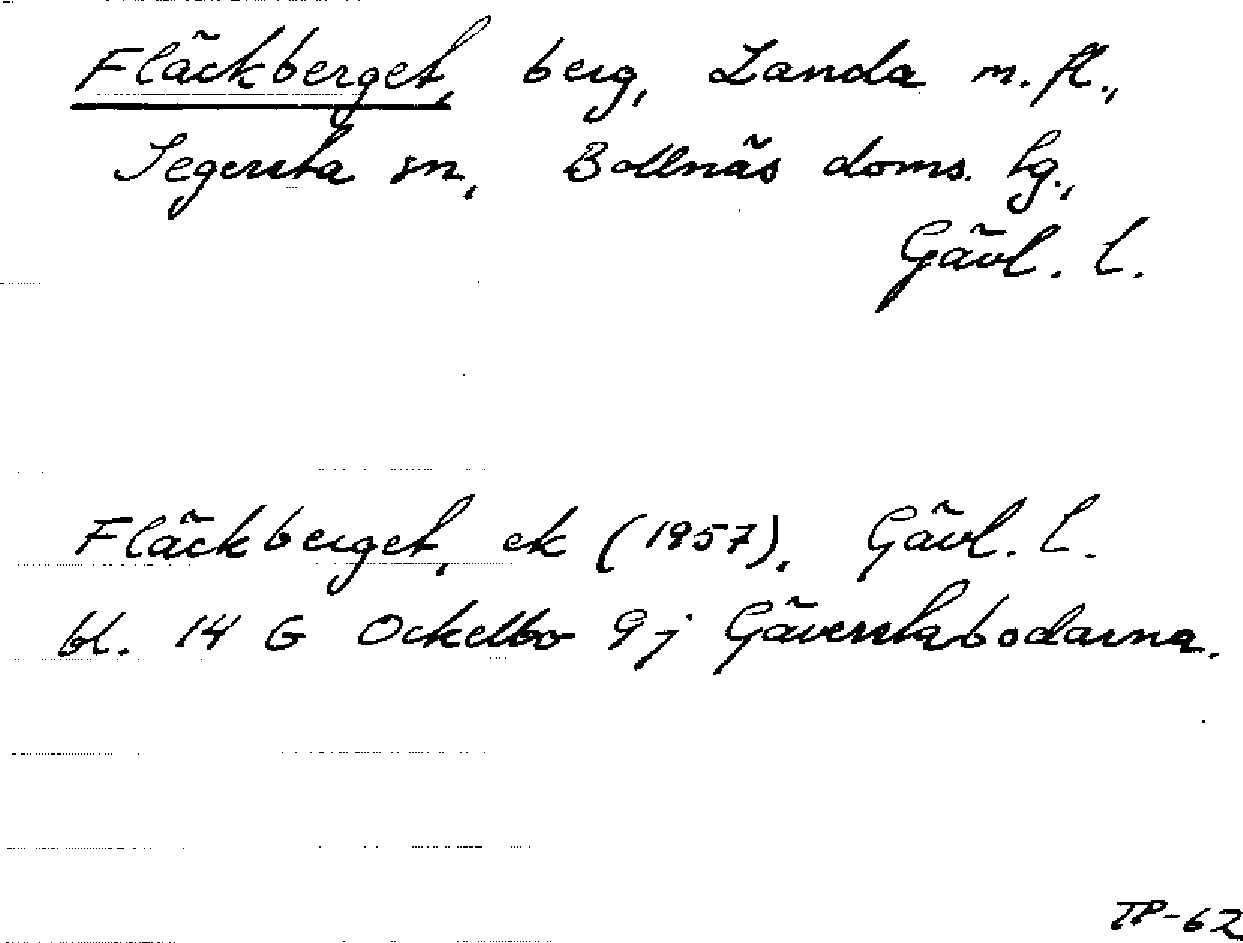 Fläckberget, berg, Landa m. fl.,
Segersta sn, Bollnäs doms. hg.,
Gävl. l.
Fläckberget, ek (1957), Gävl. l.
bl. 14 G Ockelbo 9j Gäverstabodarna.
TP-62